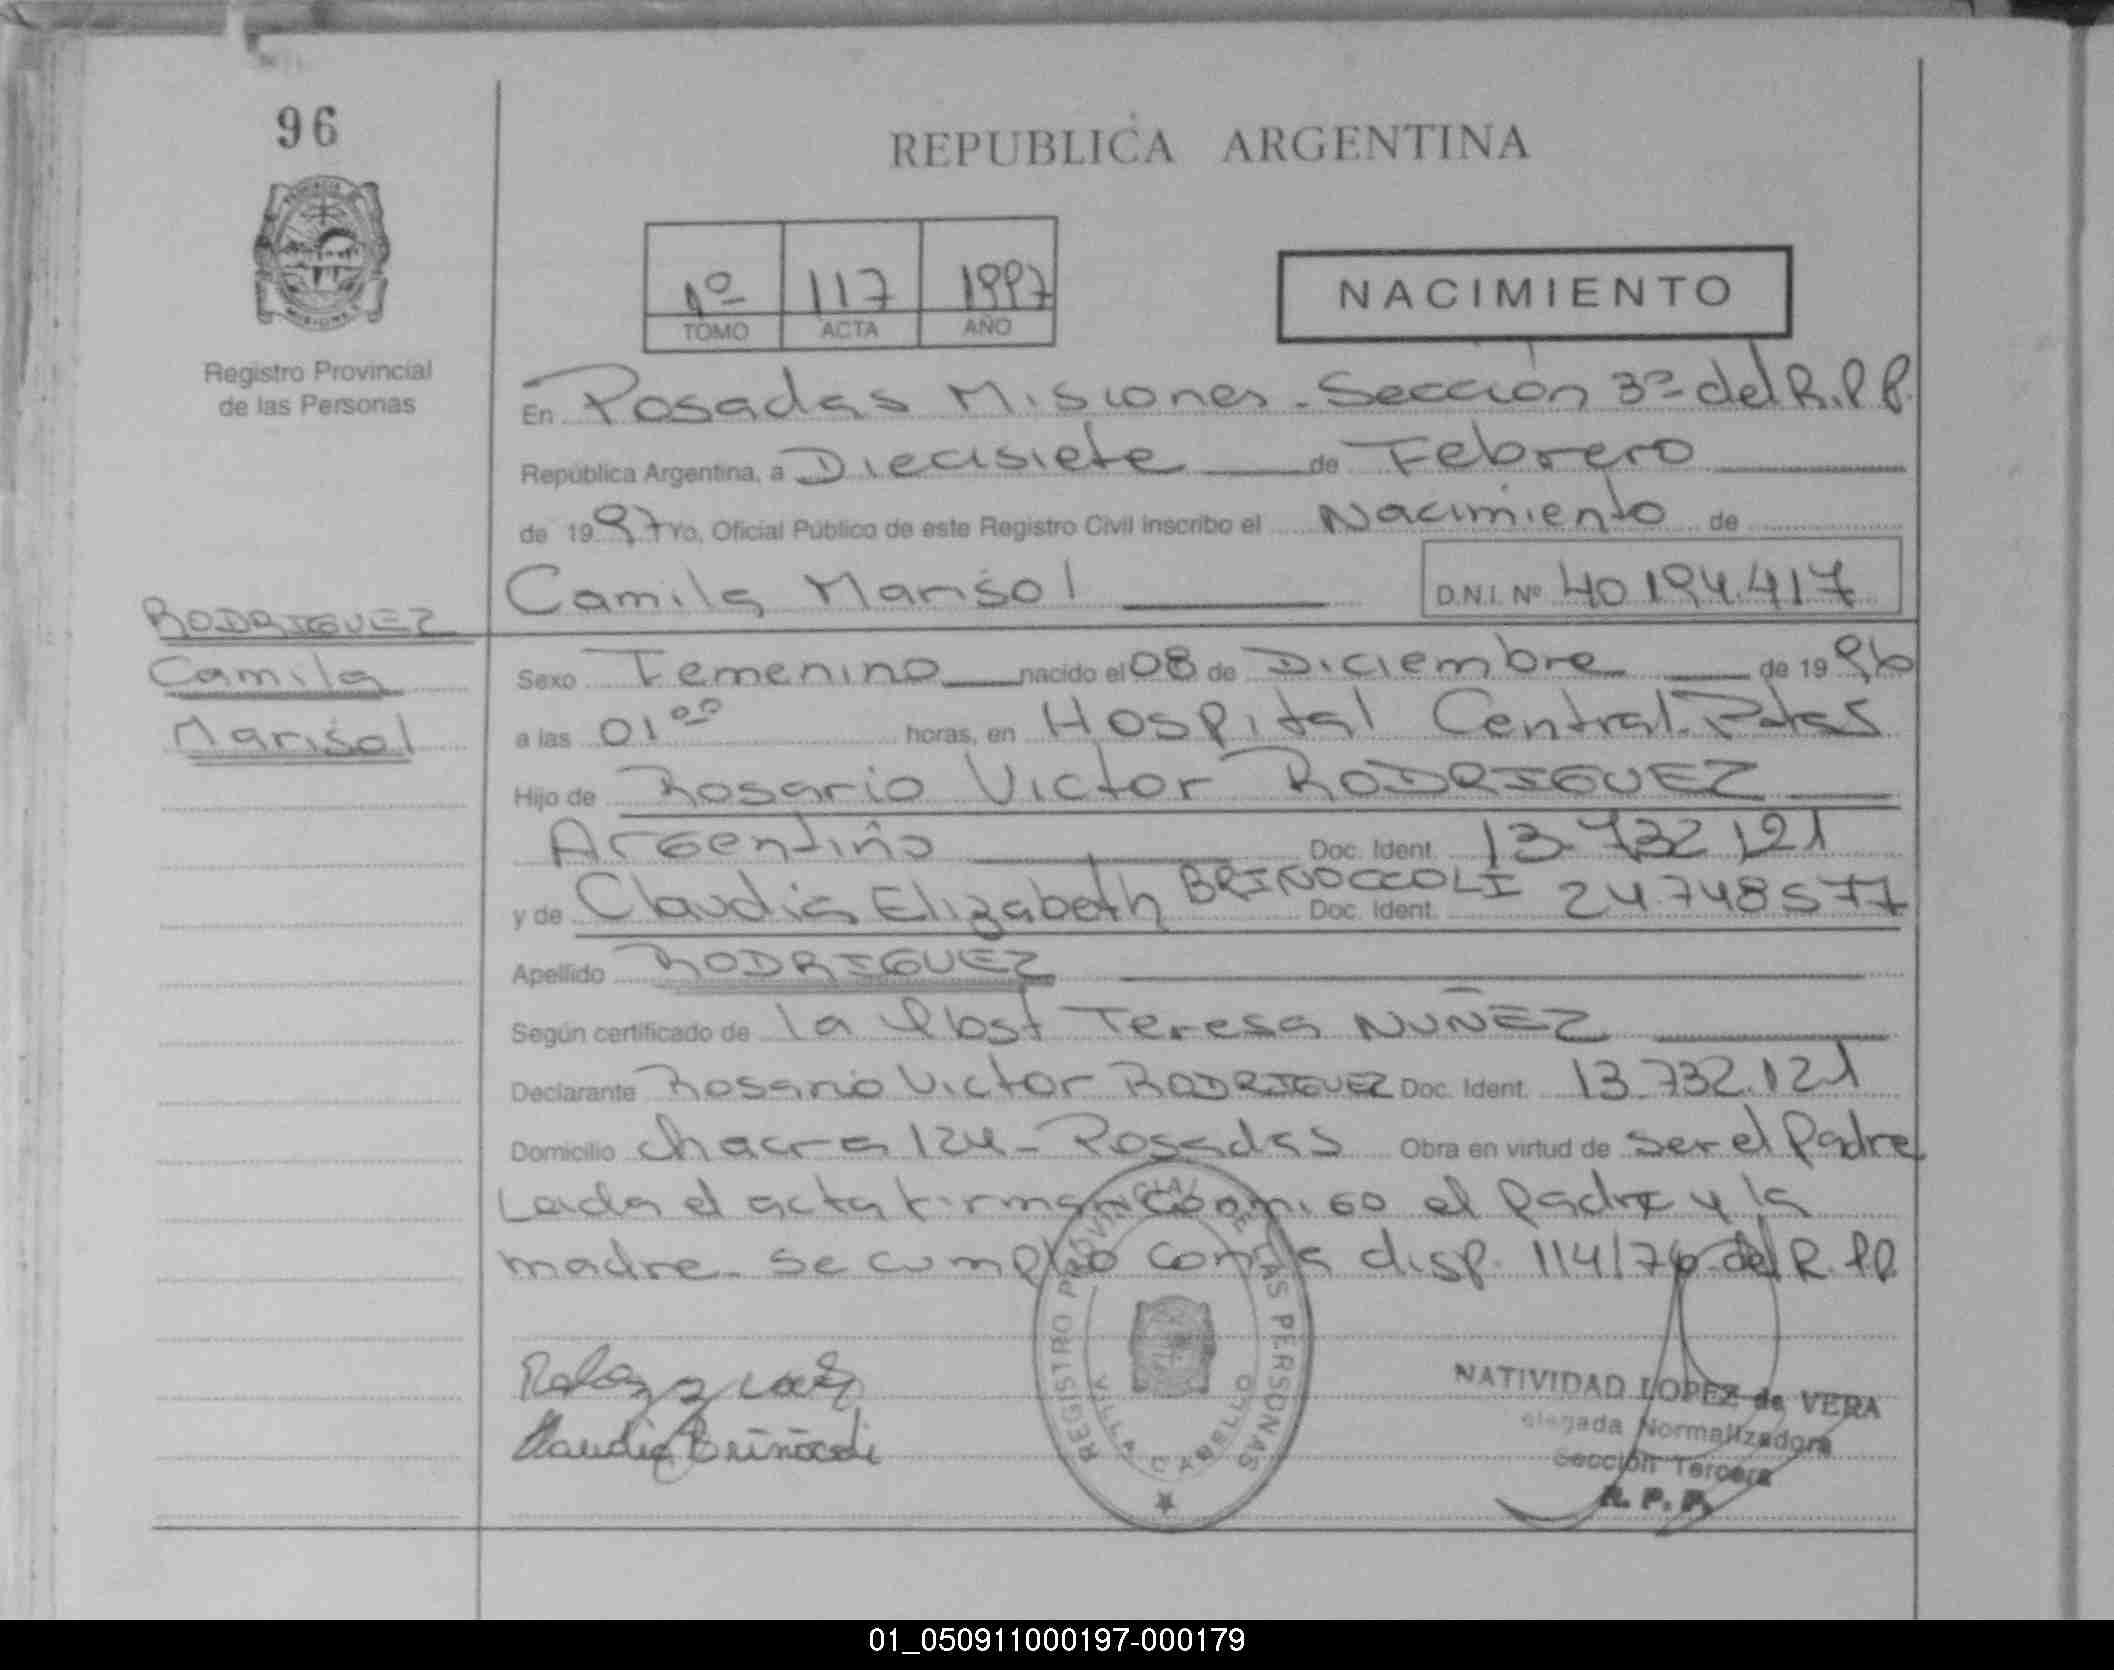 96
REPUBLICA ARGENTINA
1º 117 1997
TOMO ACTA AÑO
NACIMIENTO
Registro Provincial
de las Personas
En Posadas Misiones - Sección 3ª del R.P.P.
República Argentina, a Diecisiete de Febrero
de 1997 Yo, Oficial Público de este Registro Civil inscribo el Nacimiento de
Camila Marisol D.N.I. Nº 40194.417
RODRIGUEZ
Camila
Marisol
Sexo Femenino nacido el 08 de Diciembre de 1996
a las 01 00 horas, en Hospital Central. Pdas
Hijo de Rosario Victor RODRIGUEZ
Argentino Doc. Ident. 13.732.121
y de Claudia Elizabeth BRIÑOCCOLI Doc. Ident. 24.748577
Apellido RODRIGUEZ
Según certificado de la Obst Teresa NUÑEZ
Declarante Rosario Victor RODRIGUEZ Doc. Ident. 13.732.121
Domicilio chacra 124 - Posadas Obra en virtud de ser el Padre
Leida el acta firman conmigo el padre y la
madre. Se cumplio con la disp. 114/76 del R.P.P.
Claudia Briñócoli
REGISTRO PROVINCIAL DE LAS PERSONAS
VILLA CABELLO
NATIVIDAD LOPEZ de VERA
elegada Normalizadora
Sección Tercera
R. P. P.
01_050911000197-000179